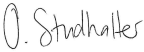 O. Studhalter